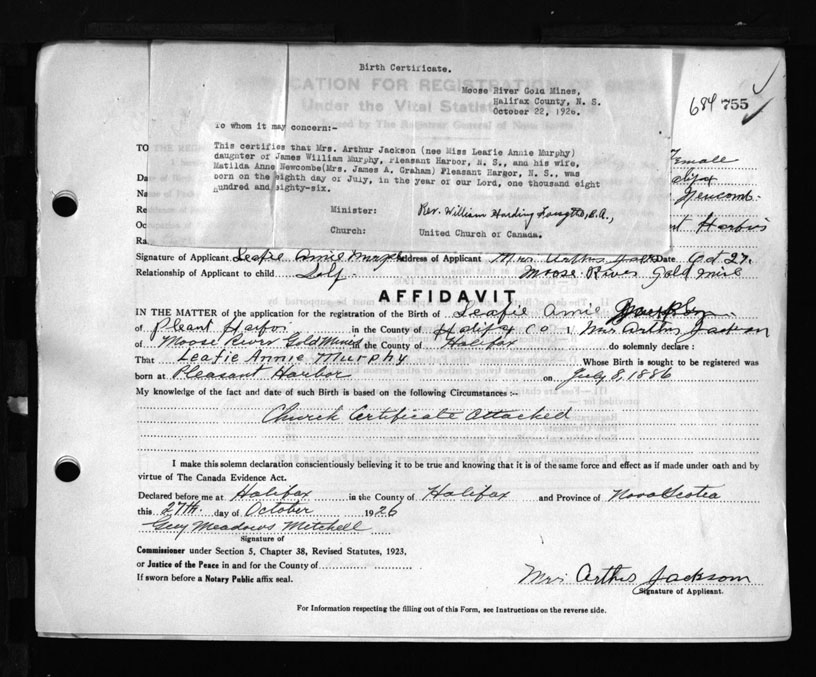 Birth Certificate.
Moose River Gold Mines,
Halifax County, N. S.
October 22, 1926.
684 755
To whom it may concern:-
This certifies that Mrs. Arthur Jackson (nee Miss Leafie Annie Murphy)
daughter of James William Murphy, Pleasant Harbor, N. S., and his wife,
Matilda Anne Newcombe(Mrs. James A. Graham) Pleasant Hargor, N. S., was
born on the eighth day of July, in the year of our Lord, one thousand eight
hundred and eighty-six.
Minister: Rev. William Harding B.A.,
Church: United Church of Canada.
CATION FOR REGISTRATION OF
Under the Vital Statist
TO
Female
Da
alifax
Na
Newcomb
Re
nt Harbor
Oc
Ra
Signature of Applicant Leafie Annie Murphy Address of Applicant Mrs. Arthur Jacks Date Oct 27.
Relationship of Applicant to child Self Moose River Gold mine
AFFIDAVIT
IN THE MATTER of the application for the registration of the Birth of Leafie Annie
of Pleant Harbor in the County of Halifax Co I, Mrs Arthur Jackson
of Moose River Gold Mines in the County of Halifax do solemnly declare:
That Leafie Annie Murphy Whose Birth is sought to be registered was
born at Pleasant Harbor on July 8, 1886
My knowledge of the fact and date of such Birth is based on the following Circumstances :-
Church Certificate Attached
I make this solemn declaration conscientiously believing it to be true and knowing that it is of the same force and effect as if made under oath and by
virtue of The Canada Evidence Act.
Declared before me at Halifax in the County of Halifax and Province of Nova Scotia
this 27th. day of October 1926
Guy Meadows Mitchell
Signature of
Commissioner under Section 5, Chapter 38, Revised Statutes, 1923,
or Justice of the Peace in and for the County of
If sworn before a Notary Public affix seal.
Mrs Arthur Jackson
Signature of Applicant.
For Information respecting the filling out of this Form, see Instructions on the reverse side.